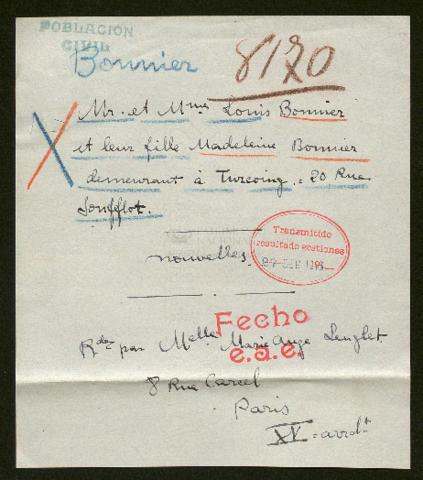 POBLACION
CIVIL
Bonnier
8170
Mr. et Mme Louis Bonnier
et leur fille Madeleine Bonnier
demeurant à Turcoing = 20 Rue
Soufflot.
Transmitido
resultado gestiones
nouvelles
Fecho
e.a.e.
Rdée par Melle Marie Ange Lenglet
8 Rue Carcel
Paris
XV = arrdt